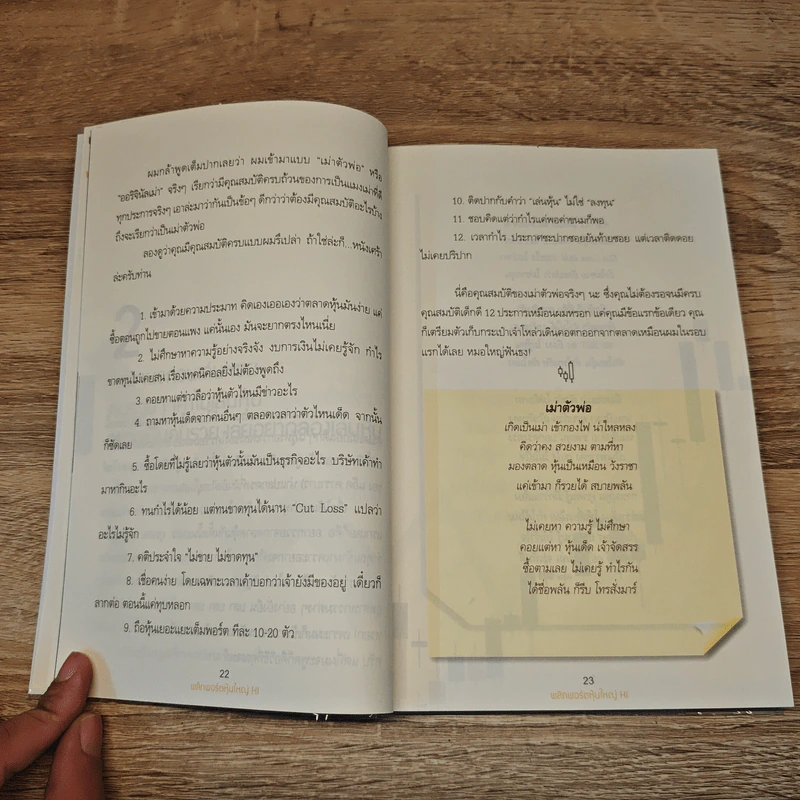 ผมกล้าพูดเต็มปากเลยว่า ผมเข้ามาแบบ "เม่าตัวพ่อ" หรือ
"ออริจินัลเม่า" จริงๆ เรียกว่ามีคุณสมบัติครบถ้วนของการเป็นแมงเม่าที่ดี
ทุกประการจริงๆ เอาล่ะมาว่ากันเป็นข้อๆ ดีกว่าว่าต้องมีคุณสมบัติอะไรบ้าง
ถึงจะเรียกว่าเป็นเม่าตัวพ่อ
ลองดูว่าคุณมีคุณสมบัติครบแบบผมรึเปล่า ถ้าใช่ล่ะก็...หนังเศร้า
ล่ะครับท่าน
1. เข้ามาด้วยความประมาท คิดเองเออเองว่าตลาดหุ้นมันง่าย แค่
ซื้อตอนถูกไปขายตอนแพง แค่นั้นเอง มันจะยากตรงไหนเนี่ย
2. ไม่ศึกษาหาความรู้อย่างจริงจัง งบการเงินไม่เคยรู้จัก กำไร
ขาดทุนไม่เคยสน เรื่องเทคนิคอลยิ่งไม่ต้องพูดถึง
3. คอยหาแต่ข่าวลือว่าหุ้นตัวไหนมีข่าวอะไร
4. ถามหาหุ้นเด็ดจากคนอื่นๆ ตลอดเวลาว่าตัวไหนเด็ด จากนั้น
ก็ซัดเลย
5. ซื้อโดยที่ไม่รู้เลยว่าหุ้นตัวนั้นมันเป็นธุรกิจอะไร บริษัทเค้าทำ
มาหากินอะไร
6. ทนกำไรได้น้อย แต่ทนขาดทุนได้นาน "Cut Loss" แปลว่า
อะไรไม่รู้จัก
7. คติประจำใจ "ไม่ขาย ไม่ขาดทุน"
8. เชื่อคนง่าย โดยเฉพาะเวลาเค้าบอกว่าเจ้ายังมีของอยู่ เดี๋ยวก็
ลากต่อ ตอนนี้แค่ทุบหลอก
9. ถือหุ้นเยอะแยะเต็มพอร์ต ทีละ 10-20 ตัว
22
10. ติดปากกับคำว่า "เล่นหุ้น" ไม่ใช่ "ลงทุน"
11. ชอบคิดแต่ว่ากำไรแค่พอค่าขนมก็พอ
12. เวลากำไร ประกาศซะปากซอยยันท้ายซอย แต่เวลาติดดอย
ไม่เคยปริปาก
นี่คือคุณสมบัติของเม่าตัวพ่อจริงๆ นะ ซึ่งคุณไม่ต้องรอจนมีครบ
คุณสมบัติเด็กดี 12 ประการเหมือนผมหรอก แค่คุณมีข้อแรกข้อเดียว คุณ
ก็เตรียมตัวเก็บกระเป๋าเจ้าโหล่วเดินคอตกออกจากตลาดเหมือนผมในรอบ
แรกได้เลย หมอใหญ่ฟันธง!
เม่าตัวพ่อ
เกิดเป็นเม่า เข้ากองไฟ น่าไหลหลง
คิดว่าคง สวยงาม ตามที่หา
มองตลาด หุ้นเป็นเหมือน วังราชา
แค่เข้ามา ก็รวยได้ สบายพลัน
ไม่เคยหา ความรู้ ไม่ศึกษา
คอยแต่หา หุ้นเด็ด เจ้าจัดสรร
ซื้อตามเลย ไม่เคยรู้ ทำไรกัน
ได้ชื่อพลัน ก็รีบ โทรสั่งมาร์
23